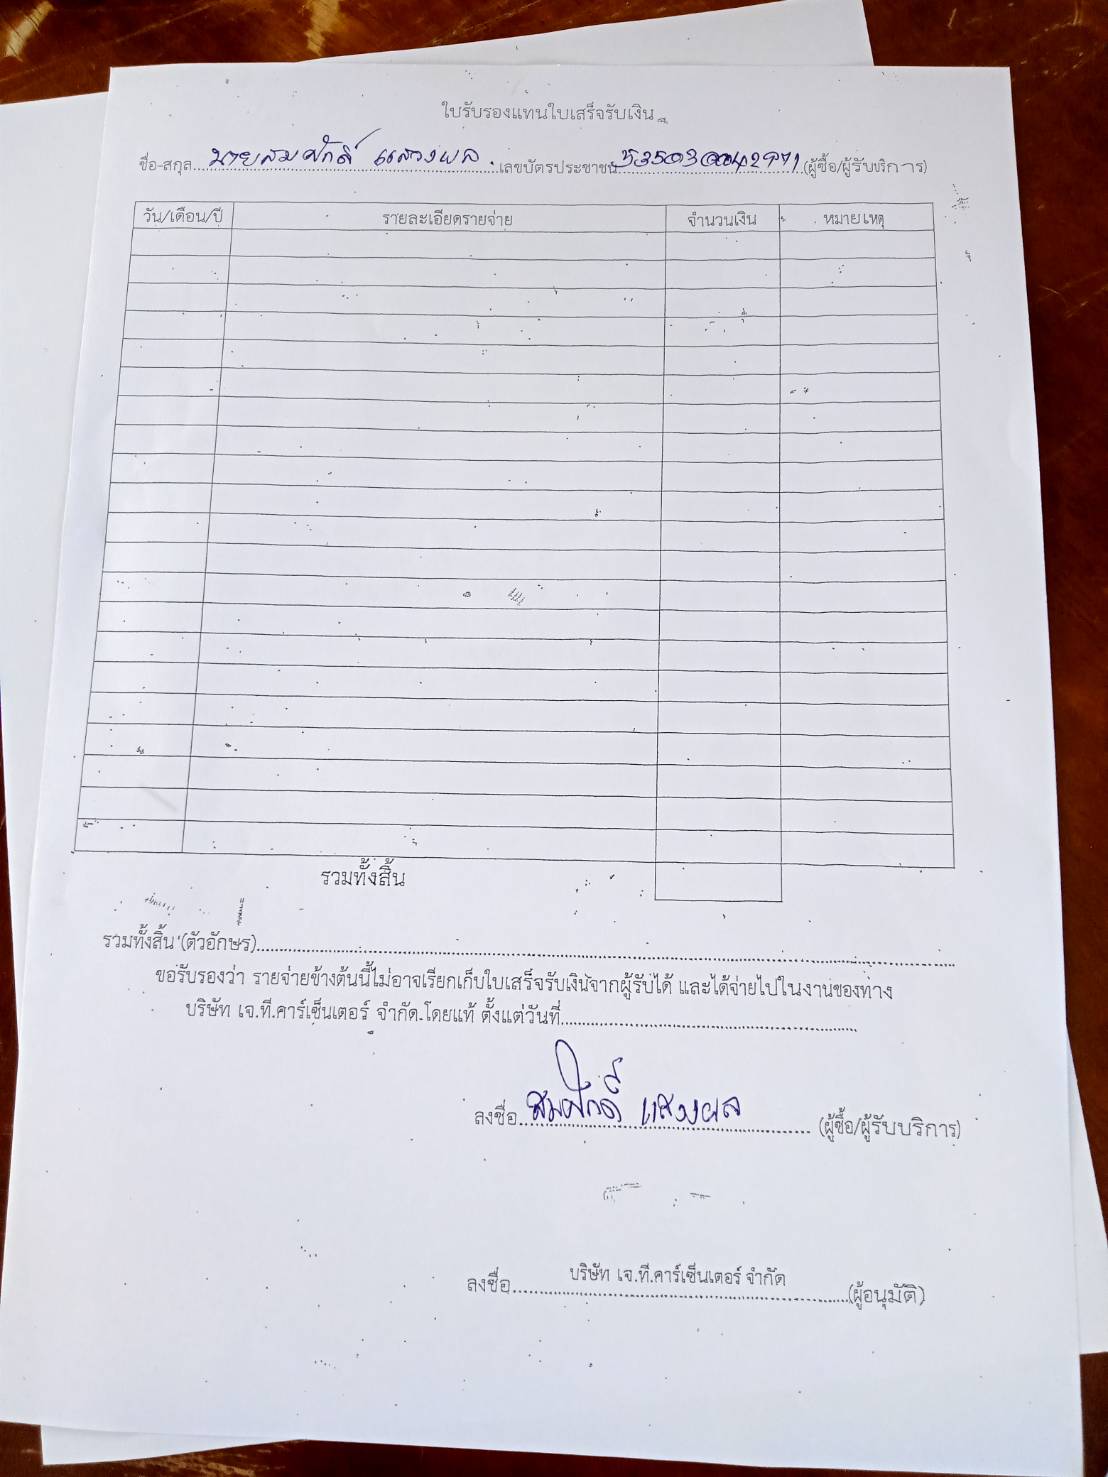 ใบรับรองแทนใบเสร็จรับเงิน
ชื่อ-สกุล นายสมศักดิ์ แสวงผล เลขบัตรประชาชน (ผู้ซื้อ/ผู้รับบริการ)
วัน/เดือน/ปี รายละเอียดรายจ่าย จำนวนเงิน หมายเหตุ
รวมทั้งสิ้น
รวมทั้งสิ้น (ตัวอักษร)
ขอรับรองว่า รายจ่ายข้างต้นนี้ไม่อาจเรียกเก็บใบเสร็จรับเงินจากผู้รับได้ และได้จ่ายไปในงานของทาง
บริษัท เจ.ที.คาร์เซ็นเตอร์ จำกัด.โดยแท้ ตั้งแต่วันที่
ลงชื่อ สมศักดิ์ แสวงผล (ผู้ซื้อ/ผู้รับบริการ)
ลงชื่อ บริษัท เจ.ที.คาร์เซ็นเตอร์ จำกัด (ผู้อนุมัติ)